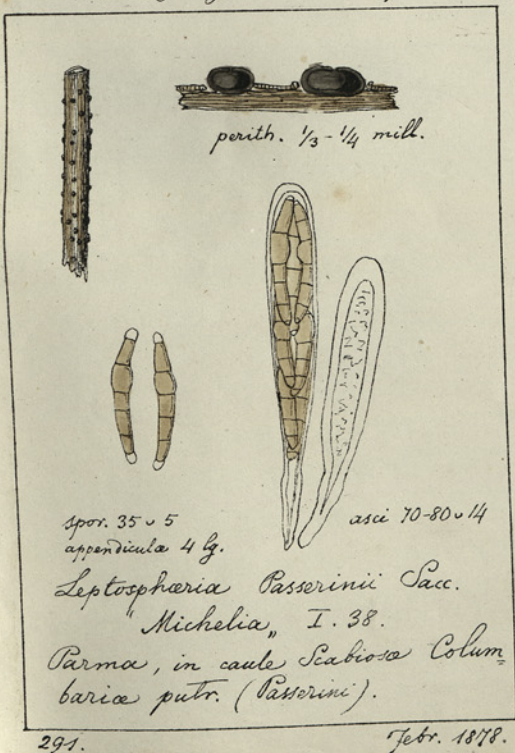 perith. 1/3 - 1/4 mill.
spor. 35 ᴗ 5
asci 70-80 ᴗ 14
appendiculæ 4 lg.
Leptosphæria Passerinii Sacc.
"Michelia„ I. 38.
Parma, in caule Scabiosæ Colum=
bariæ putr. (Passerini).
291.
Febr. 1878.